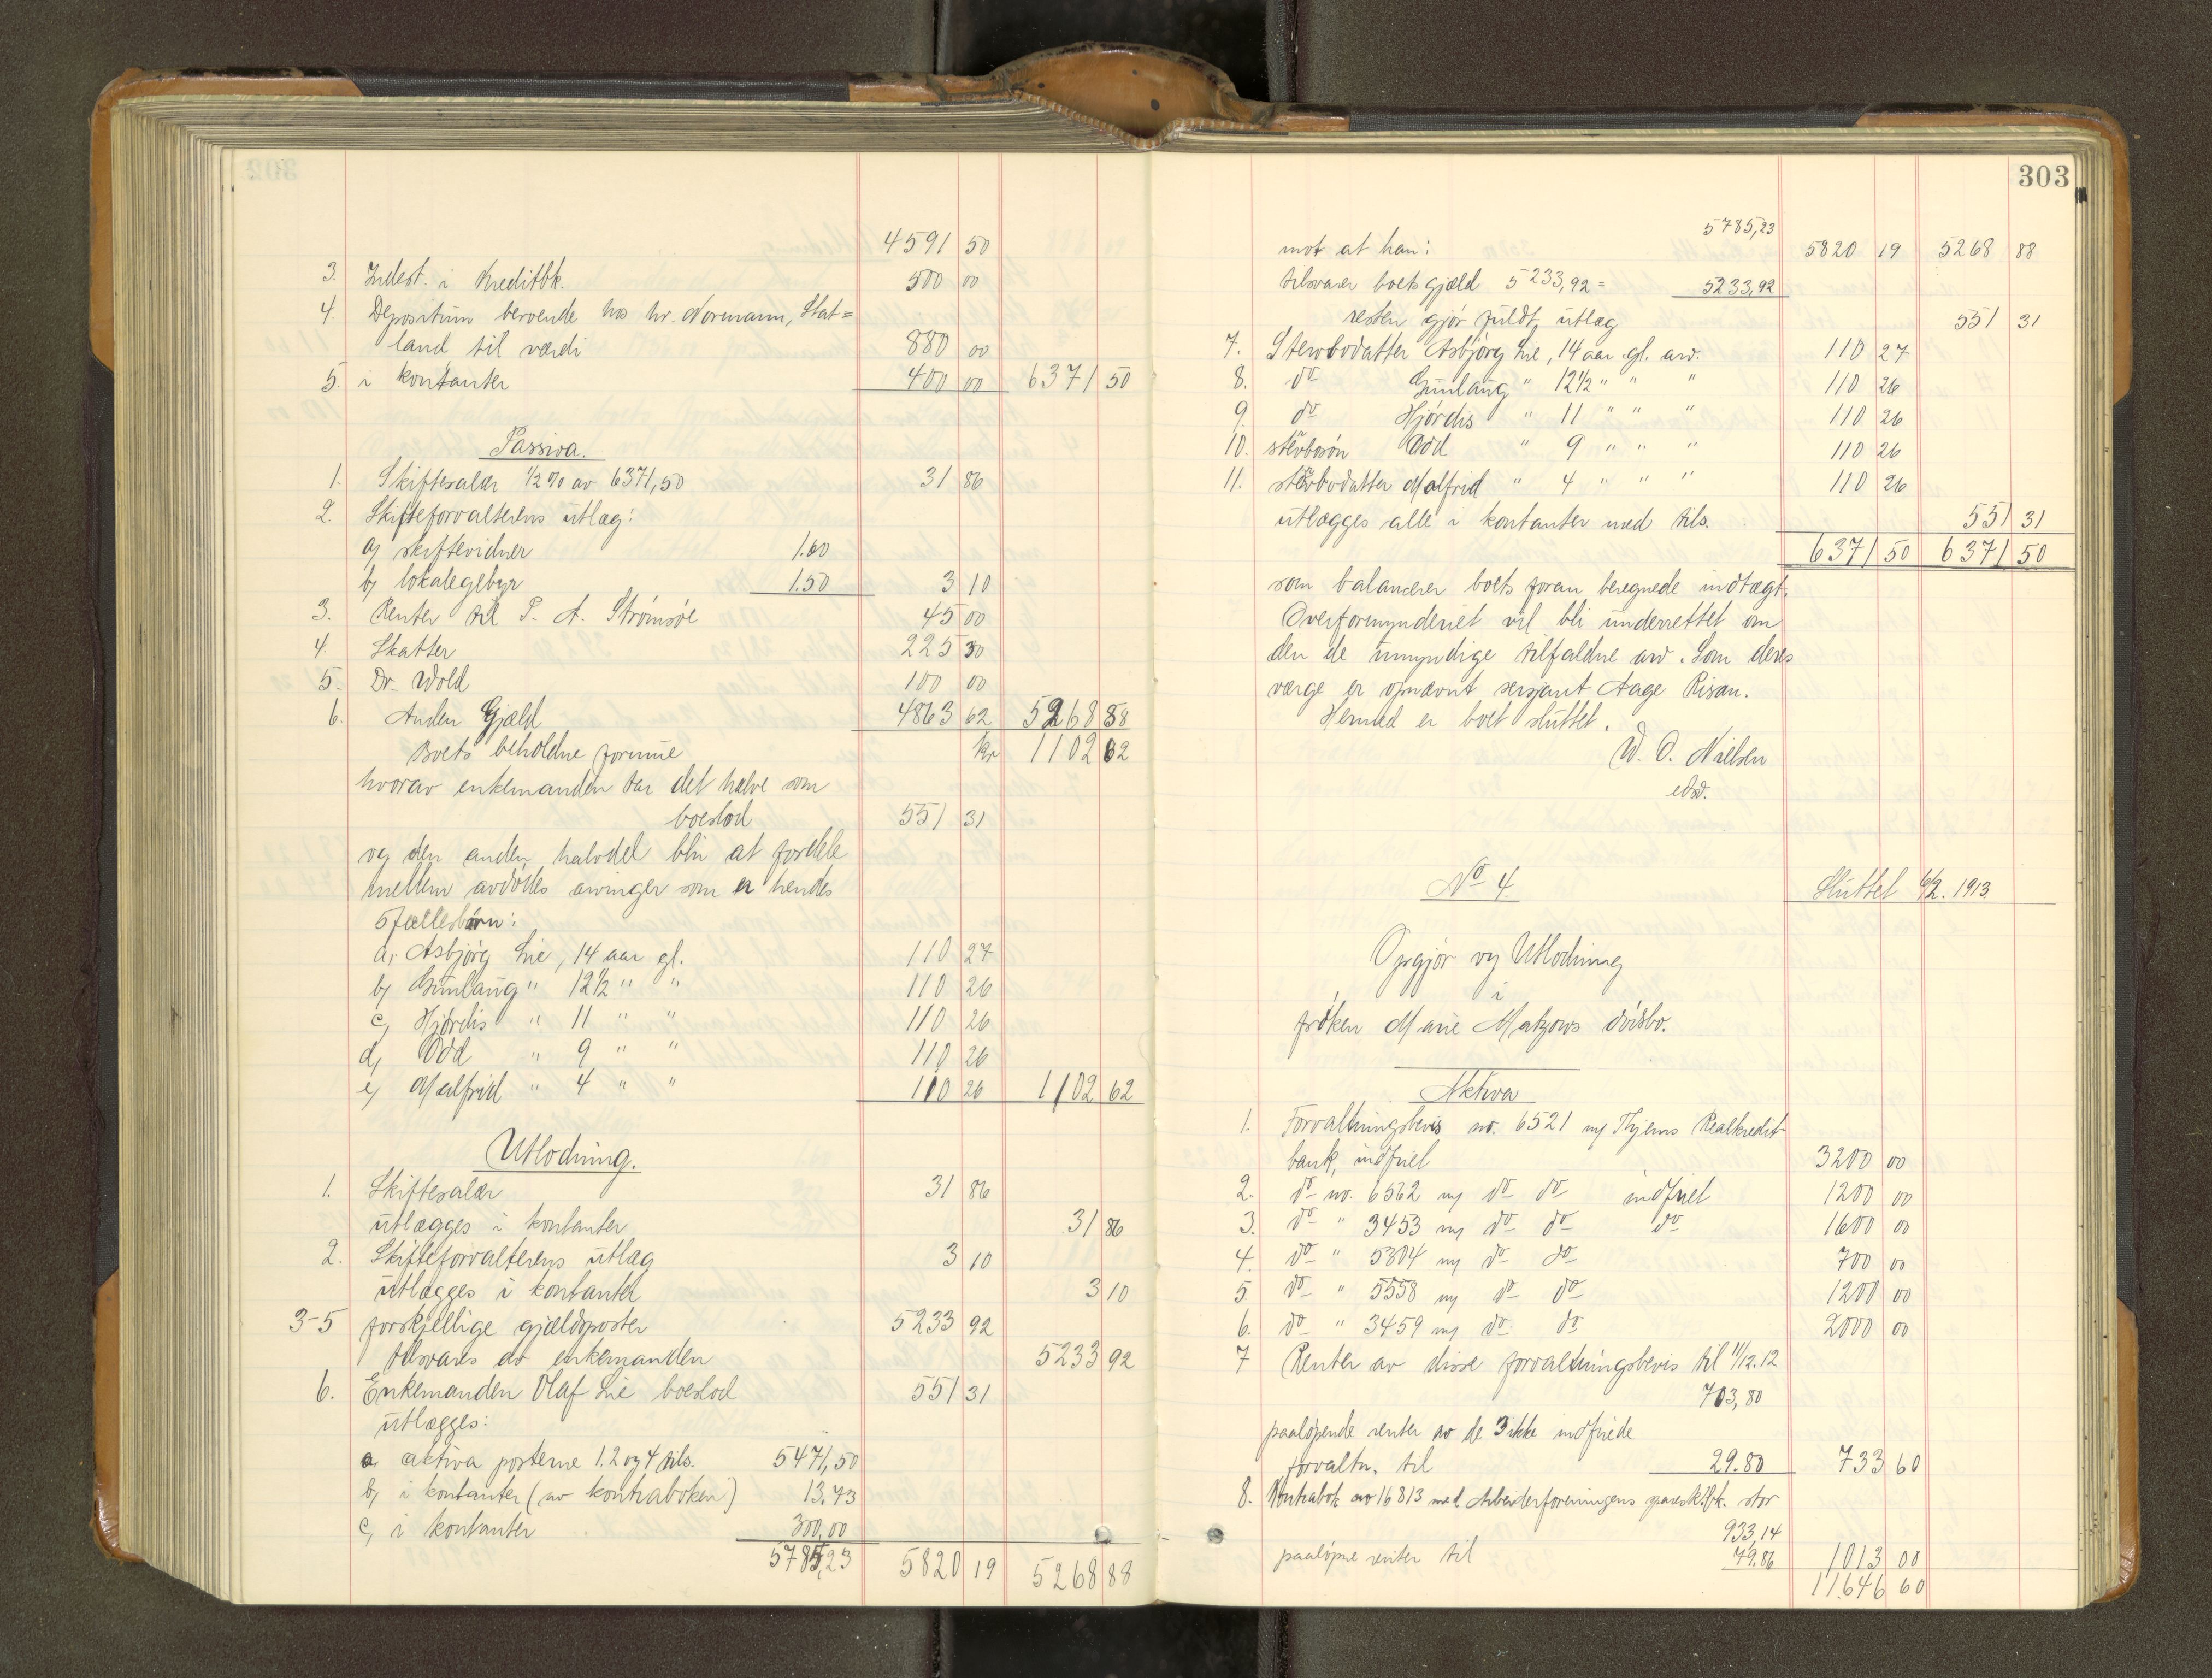 4591 50
3. Indest. i Kreditbk. 500 00
4. Depositum beroende hos hr. Normann, Stat=
land til værdi 880 00
5. i kontanter 400 00 6371 50
Passiva.
1. Skiftesalær ½ % av 6371,50 31 86
2. Skifteforvalterens utlæg:
a) skiftevidner 1.60
b) lokalegebyr 1.50 3 10
3. Renter til P. A. Strømsøe 45 00
4. Skatter 225 30
5. Dr. Wold 100 00
6. Anden Gjæld 4863 62 5268 88
Boets beholdne formue kr 1102 62
hvorav enkemanden tar det halve som
boeslod 551 31
og den anden halvdel blir at fordele
mellem avdødes arvinger som er hendes
5 fællesbørn:
a, Asbjørg Lie, 14 aar gl. 110 27
b) Gunlaug " 12½ " " 110 26
c, Hjørdis " 11 " " 110 26
d, Odd " 9 " " 110 26
e, Malfrid " 4 " " 110 26 1102 62
Utlodning.
1. Skiftesalær 31 86
utlægges i kontanter 31 86
2. Skifteforvalterens utlæg 3 10
utlægges i kontanter 3 10
3-5 forskjellige gjældsposter 5233 92
tilsvares av enkemanden 5233 92
6. Enkemanden Olaf Lie boeslod 551 31
utlægges:
a aktiva posterne 1. 2 og 4 tils. 5471,50
b, i kontanter (av kontraboken) 13.73
c, i kontanter 300,00
5785,23 5820 19 5268 88
303
5785,23
mot at han: 5820 19 5268 88
tilsvarer boets gjæld 5233,92 = 5233,92
resten gjør fuldt utlæg 551 31
7. Stervbodatter Asbjørg Lie, 14 aar gl. arv. 110 27
8. do Gunlaug " 12½ " " " 110 26
9. do Hjørdis " 11 " " " 110 26
10. stervbosøn Odd " 9 " " " 110 26
11. stervbodatter Malfrid " 4 " " " 110 26
utlægges alle i kontanter med tils. 551 31
6371 50 6371 50
som balancerer boets foran beregnede indtægt.
Overformynderiet vil bli underrettet om
den de umyndige tilfaldne arv. Som deres
værge er opnævnt sersjant Aage Risan.
Hermed er boet sluttet.
W. O. Nielsen
edsv.
No 4. Sluttet 6/2. 1913
Opgjør og Utlodning
i
frøken Marie Matzows dødsbo.
Aktiva
1. Forvaltningsbevis no. 6521 Thjems Realkredit-
bank, indfriet 3200 00
2. do no. 6562 do do indfriet 1200 00
3. do " 3453 do do do 1600 00
4. do " 5804 do do 700 00
5. do " 5558 do do 1200 00
6. do " 3459 do do 2000 00
7 Renter av disse forvaltningsbevis til 11/12.12
703,80
paaløpende renter av de 3 ikke indfriede
forvaltn. til 29.80 733 60
8. Kontrabok no 16813 med Arbeiderforeningens sparesk.bk. stor
933,14
paaløpne renter til 79.86 1013 00
11.646 60